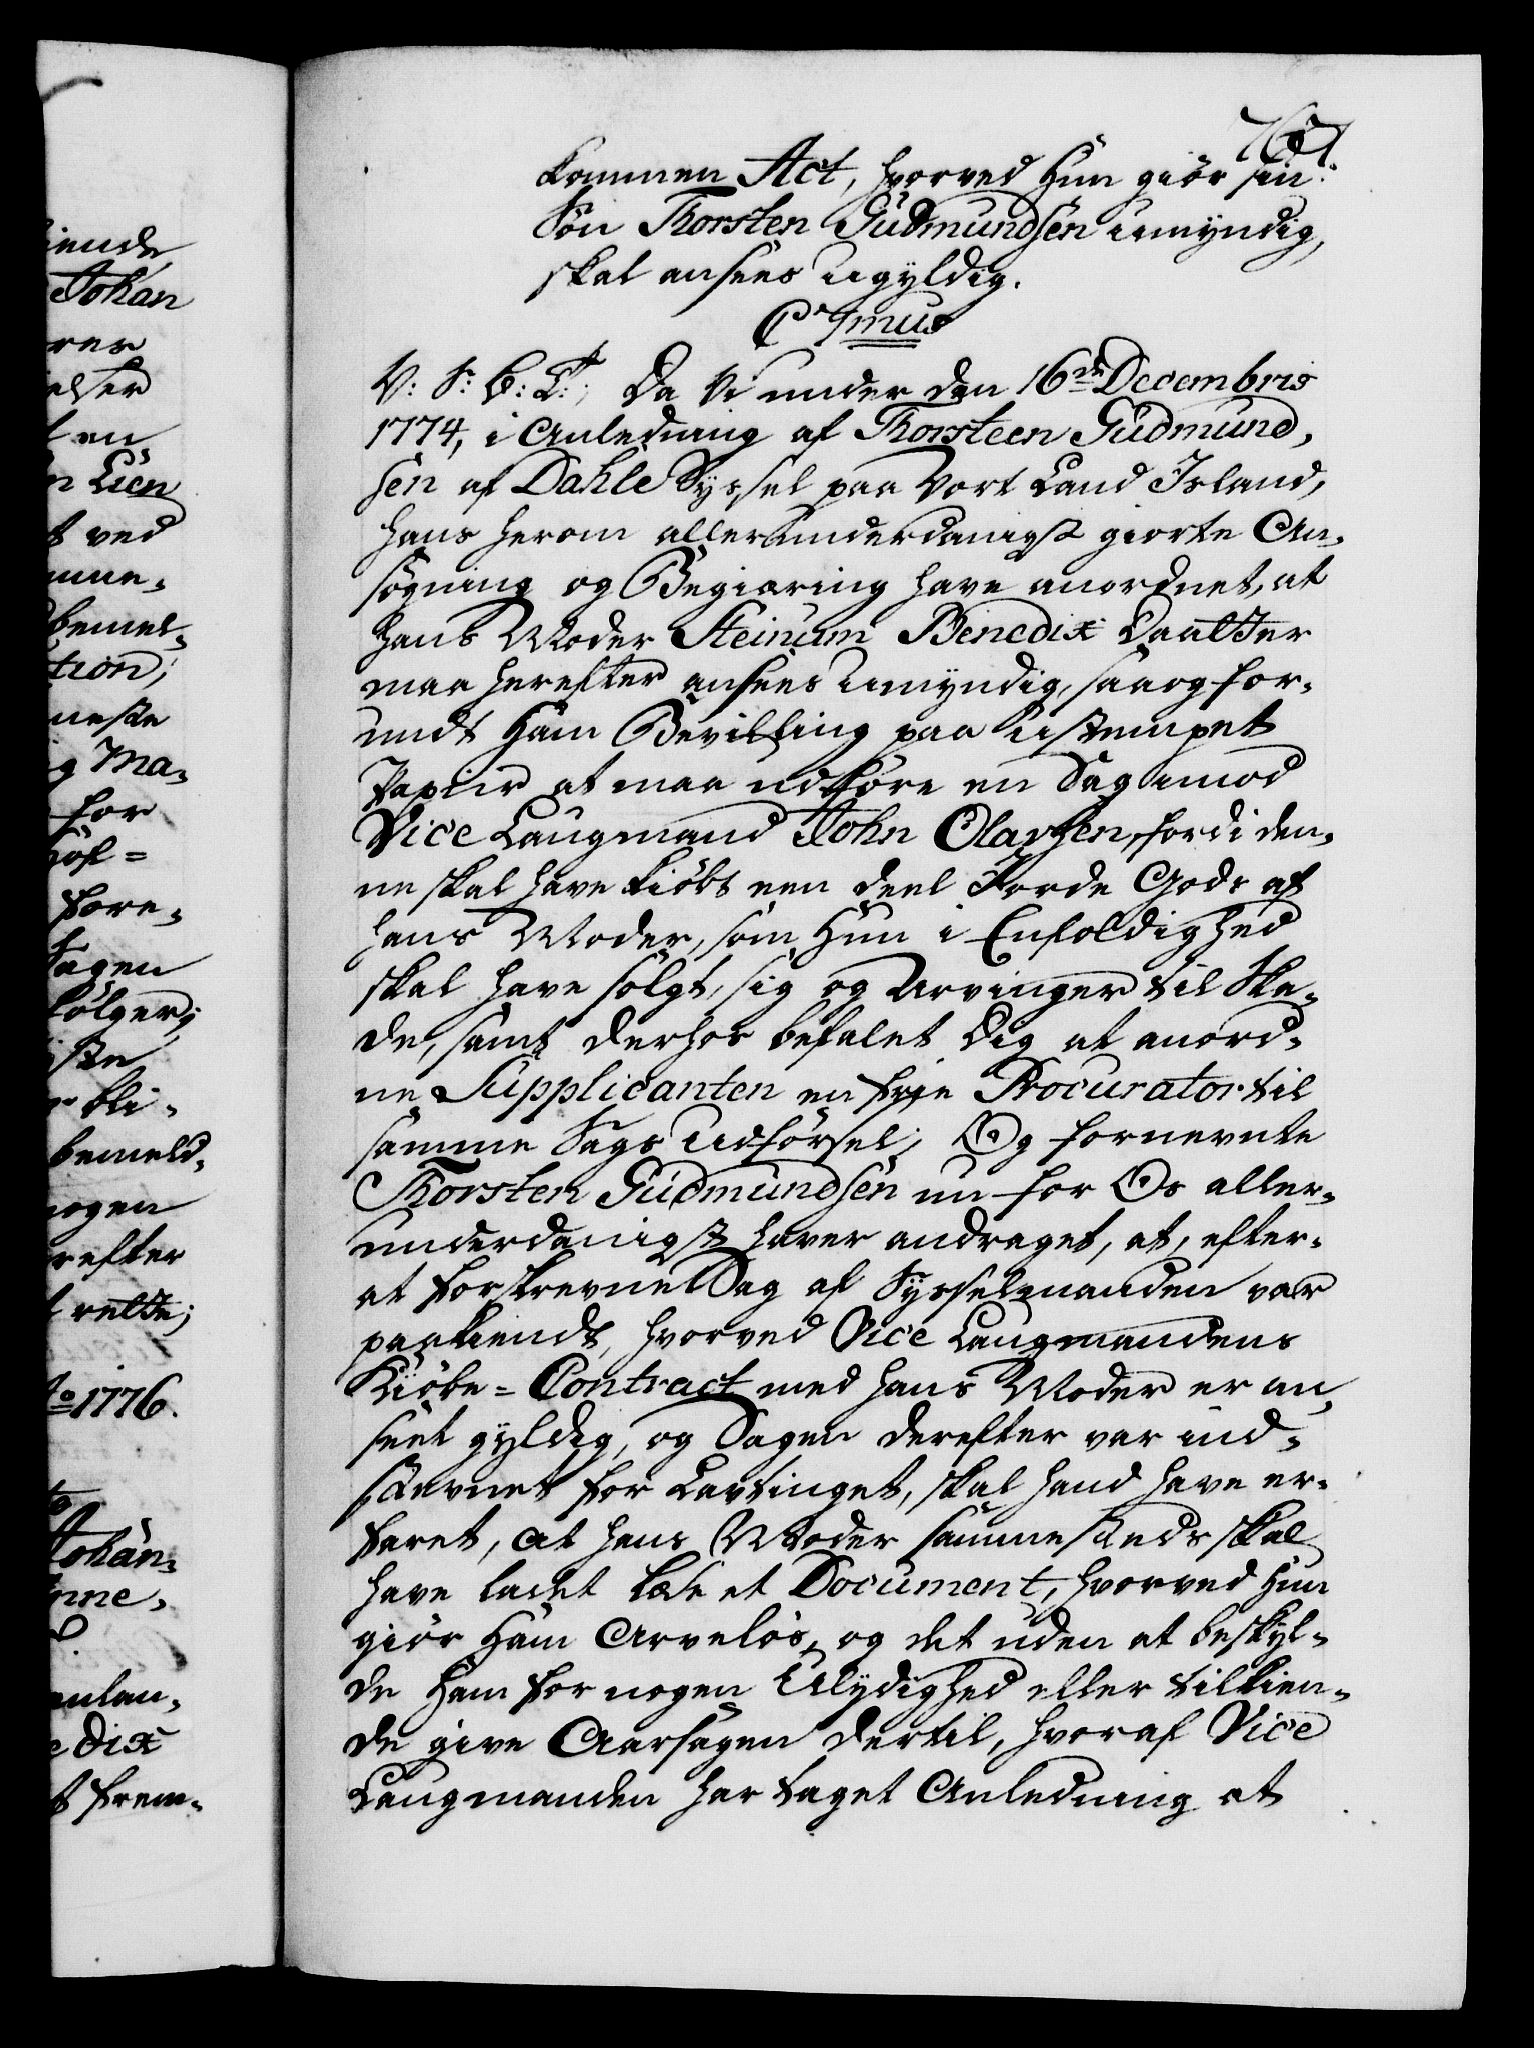 767.
kommen Act, hvorved Hun giör sin
Sön Thorsten Gudmundsen umyndig,
skal ansees ugyldig.
C. 7mus
V: S: B: T:, Da Vi under den 16de Decembris
1774, i Anledning af Thorsteen Gudmund,
sen af Dahle Syssel paa Vort Land Island,
hans herom allerunderdanigst giorte An-
søgning og Begiæring have anordnet, at
hans Moder Steinum Benedix Daatter
maa herefter ansees umyndig, saa og for-
undt Ham Bevilling paa ustemplet
Papiir at maa udföre en Sag imod
Vice Laugmand John Olavsen, fordi den-
ne skal have kiöbt een deel Jorde Gods af
hans Moder, som Hun i Enfoldighed
skal have solgt, sig og Arvinger til Ska-
de, samt derhos befalet Dig at anord-
ne Supplicanten en frie Procurator til
samme Sags Udförsel; Og fornevnte
Thorsten Gudmundsen nu for Os aller-
underdanigst haver andraget, at, efter-
at forskrevne Sag af Sysselmanden var
paakiendt, hvorved Vice Laugmandens
Kiöbe = Contract med hans Moder er an,
seet gyldig, og Sagen derefter var ind-
stævnet for Lavtinget, skal hand have er-
faret, at hans Moder sammesteds skal
have ladet læse et Document, hvorved Hun
giör Ham Arvelös, og det uden at beskyl-
de Ham for nogen Ulydighed eller tilkien-
de give Aarsagen dertil, hvoraf Vice
Laugmanden har taget Anledning at
iende
Johan
rer
elser
t en
n Lien
t ved
mme-
bemel-
tion;
neste
g Ma-
for
höf=
fore-
Sagen
følger;
iste
r bli-
bemeld-
nogen
refter
t rette;
to 1776.
Johan-
nne,
anlan-
e dix
t frem-